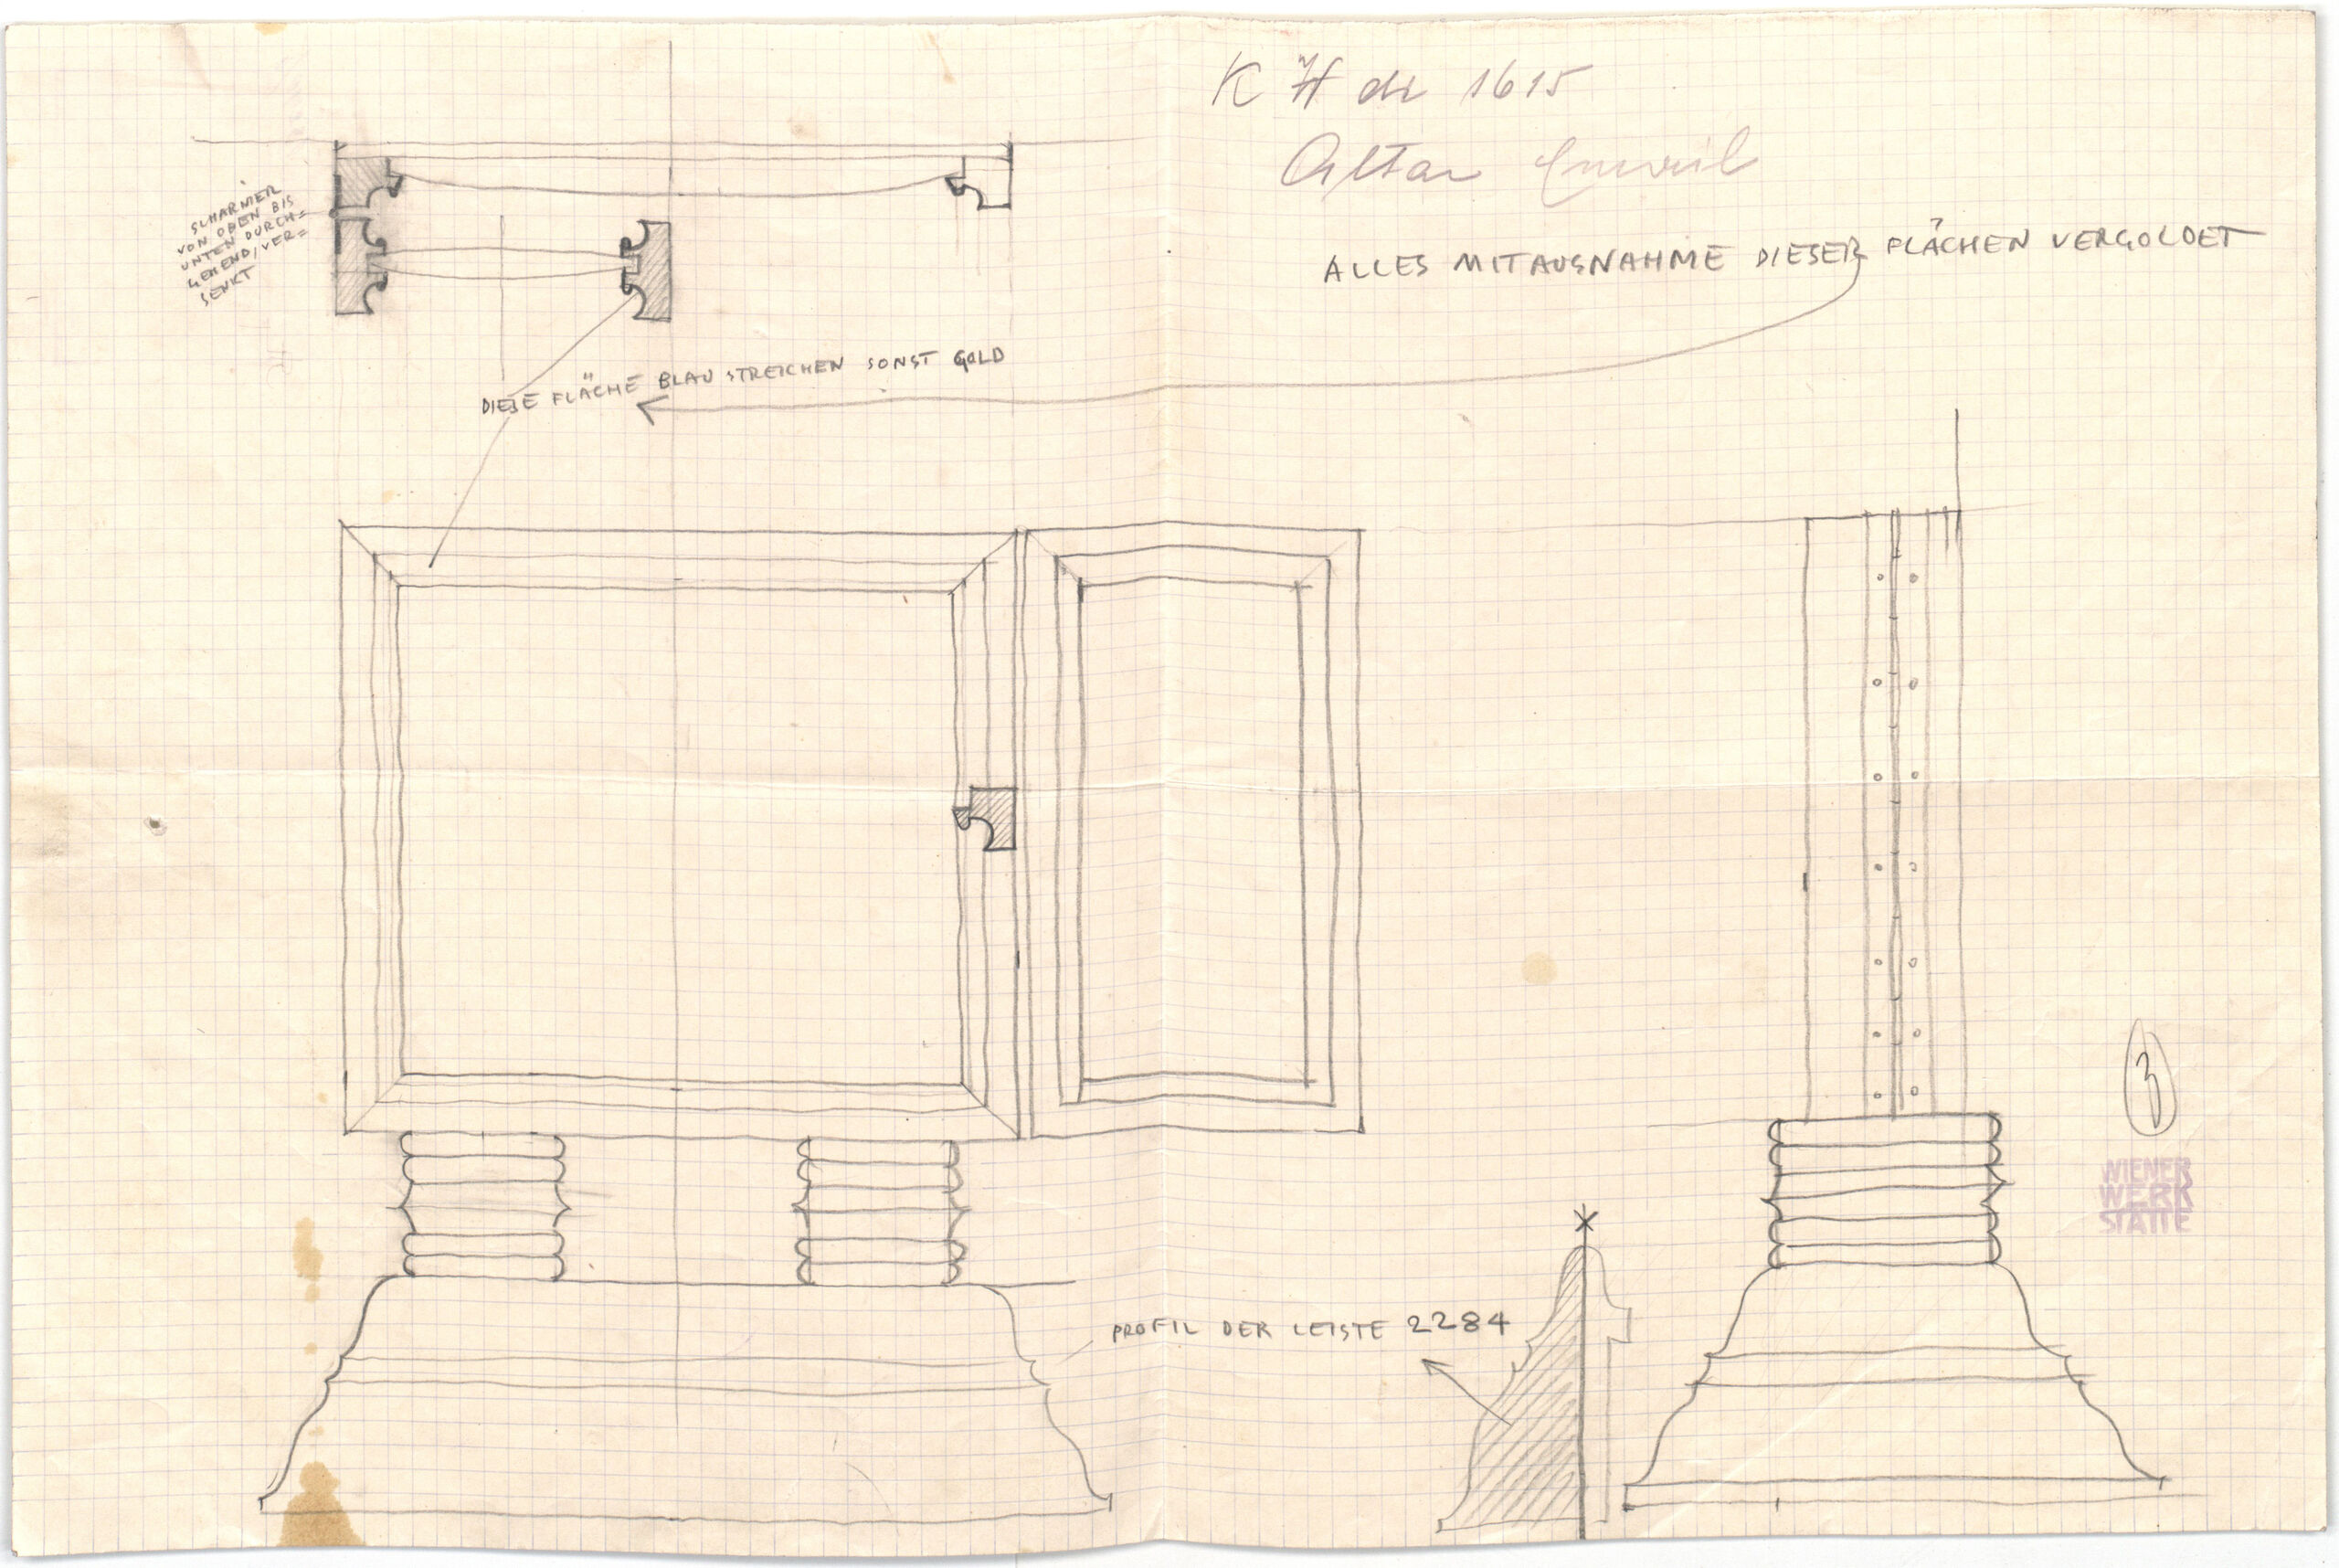 K H de 1615
Altar Email
ALLES MIT AUSNAHME DIESER FLÄCHEN VERGOLDET
SCHARNIER
VON OBEN BIS
UNTEN DURCH=
GEHEND/VER=
SENKT
DIESE FLÄCHE BLAU STREICHEN SONST GOLD
3
WIENER
WERK
STÄTTE
PROFIL DER LEISTE 2284